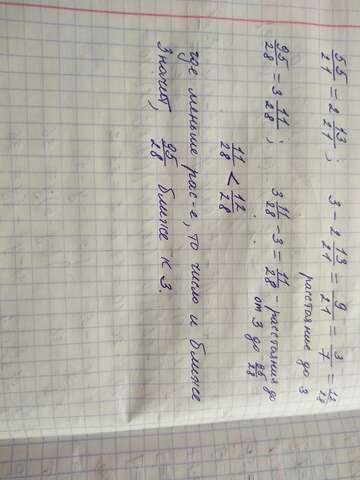 55/21 = 2 13/21; 3 - 2 13/21 = 9/21 = 3/7 = 12/28
расстояние до 3
95/28 = 3 11/28; 3 11/28 - 3 = 11/28 - расстояния до
от 3 до 95/28
11/28 < 12/28
где меньше рас-е, то число и ближе
Значит, 95/28 ближе к 3.